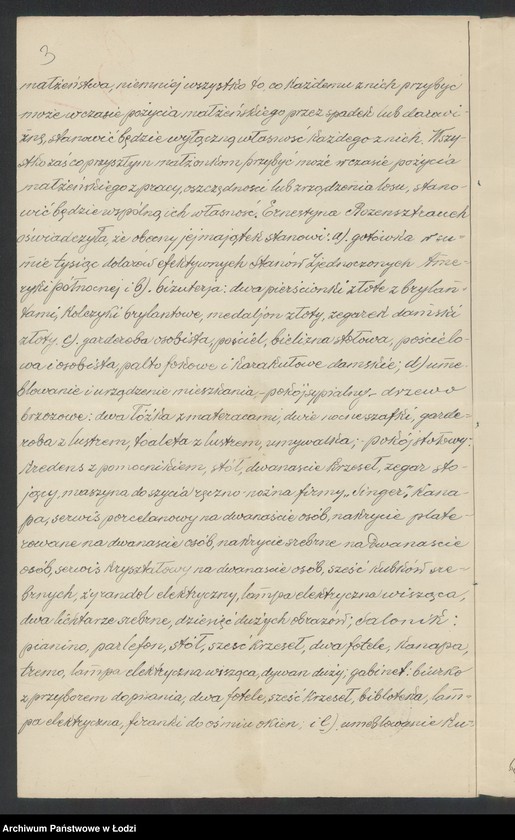 3
małżeństwa, niemniej wszystko to, co każdemu z nich przybyć
może w czasie pożycia małżeńskiego przez spadek lub darowi-
znę, stanowić będzie wyłączną własność każdego z nich. Wszy-
stko zaś co przyszłym małżonkom przybyć może w czasie pożycia
małżeńskiego z pracy, oszczędności lub zrządzenia losu, stano-
wić będzie wspólną ich własność. Ernestyna Rozensztrauch
oświadczyła, że obecny jej majątek stanowi: a). gotówka w su-
mie tysiąc dolarów efektywnych Stanów Zjednoczonych Ame-
ryki Północnej i b). biżuterja: dwa pierścionki złote z brylan-
tami, kolczyki brylantowe, medaljon złoty, zegarek damski
złoty. c). garderoba osobista, pościel, bielizna stołowa, pościelo-
wa i osobista, palto fokowe i karakułowe damskie; d) ume-
blowanie i urządzenie mieszkania, - pokój sypialny - drzewo
brzozowe: dwa łóżka z materacami, dwie nocne szafki, garde-
roba z lustrem, toaleta z lustrem, umywalka; - pokój stołowy:
kredens z pomocnikiem, stół, dwanaście krzeseł, zegar sto-
jący, maszyna do szycia ręczno-nożna firmy „Singer", kana-
pa, serwis porcelanowy na dwanaście osób, nakrycie plate-
rowane na dwanaście osób, nakrycie srebrne na dwanaście
osób, serwis kryształowy na dwanaście osób, sześć kubków sre-
brnych, żyrandol elektryczny, lampa elektryczna wisząca,
dwa lichtarze srebrne, dziesięć dużych obrazów; salonik:
pianino, parlefon, stół, sześć krzeseł, dwa fotele, kanapa,
tremo, lampa elektryczna wisząca, dywan duży; gabinet: biurko
z przyborem do pisania, dwa fotele, sześć krzeseł, bibloteka, lam-
pa elektryczna, firanki do ośmiu okien; i e) umeblowanie ku-
Archiwum Państwowe w Łodzi